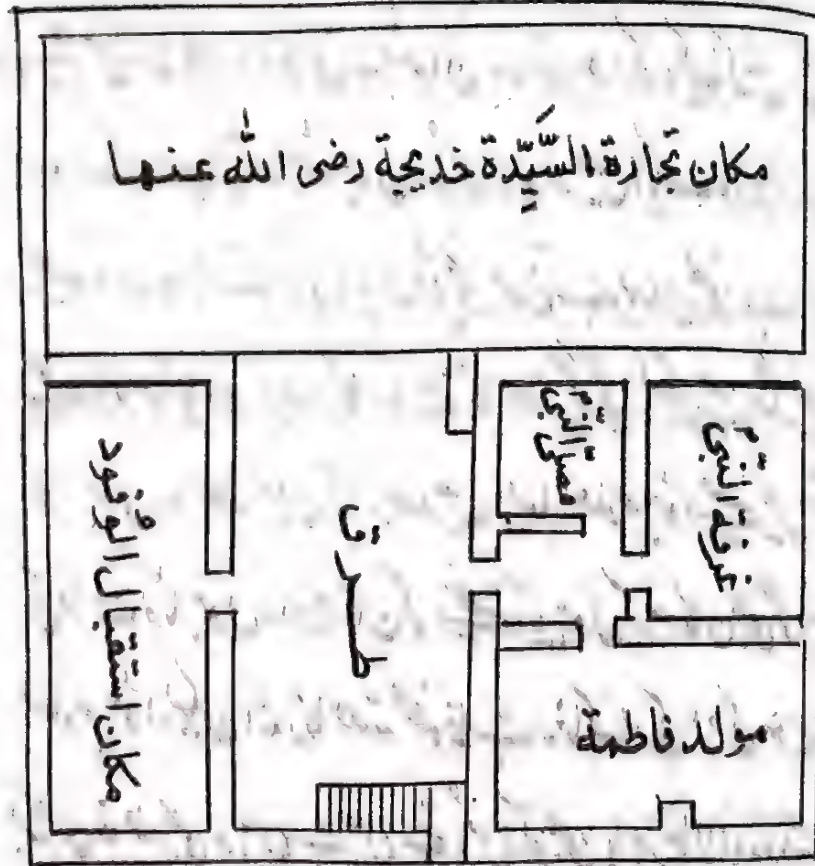 مكان تجارة السَّيِّدة خديجة رضى الله عنها
غرفة النبىّ
مصلى النبىّ
طرق
مكان استقبال الوُفود
مولد فاطمة